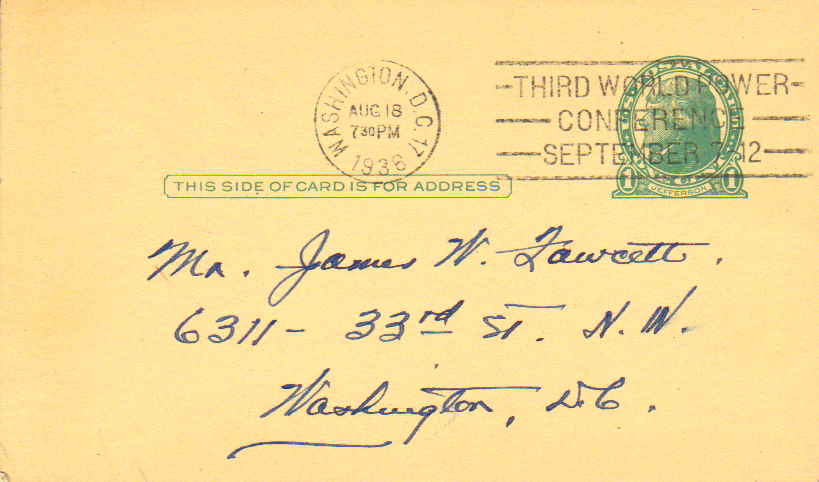 WASHINGTON, D.C. 17
AUG 18
7 30 PM
1936
THIRD WORLD POWER
CONFERENCE
SEPTEMBER 7-12
1 JEFFERSON 1
THIS SIDE OF CARD IS FOR ADDRESS
Mr. James W. Fawcett.
6311 - 33rd St. N.W.
Washington, D.C.